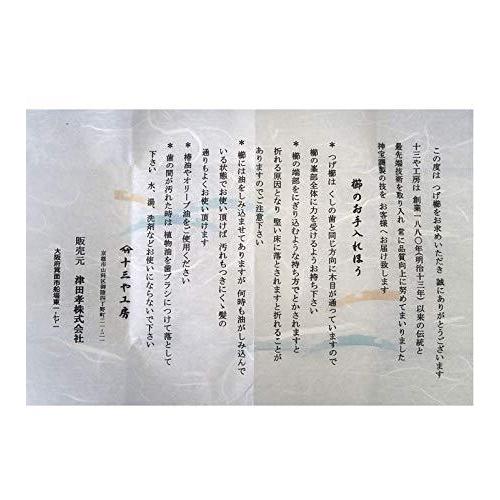 この度は つげ櫛をお求めいただき 誠にありがとうございます
十三や工房は 創業一八八〇年(明治十三年)以来の伝統と
最先端技術を取り入れ 常に品質向上に努めてまいりました
神宝謹製の技を お客様へお届け致します
櫛のお手入れほう
* つげ櫛は くしの歯と同じ方向に木目が通っていますので
櫛の峯部全体に力を受けるようお持ち下さい
* 櫛の端部をにぎり込むような持ち方でとかされますと
折れる原因となり 堅い床に落とされますと折れることが
ありますのでご注意下さい
* 櫛には油をしみ込ませてありますが 何時も油がしみ込んで
いる状態でお使い頂けば 汚れもつきにくゝ髪の
通りもよくお使い頂けます
* 椿油やオリーブ油をご使用ください
* 歯の間が汚れた時は 植物油を歯ブラシにつけて落として
下さい 水、湯、洗剤などお使いにならないで下さい
十三や工房
京都市山科区御陵四丁野町
販売元 津田孝株式会社
大阪府箕面市船場東一-七-